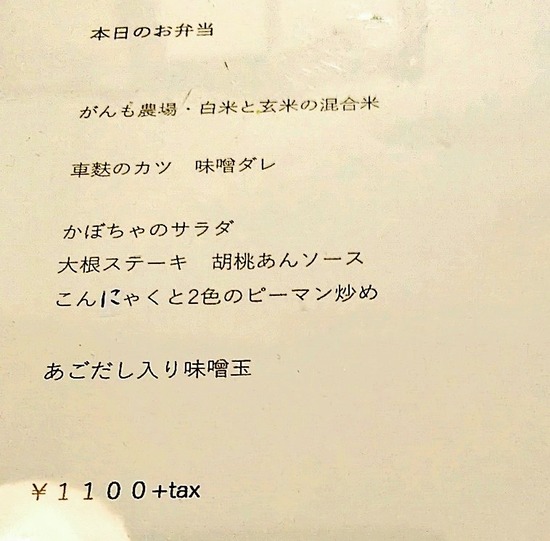 本日のお弁当
がんも農場・白米と玄米の混合米
車麩のカツ　味噌ダレ
かぼちゃのサラダ
大根ステーキ　胡桃あんソース
こんにゃくと2色のピーマン炒め
あごだし入り味噌玉
￥１１００+tax